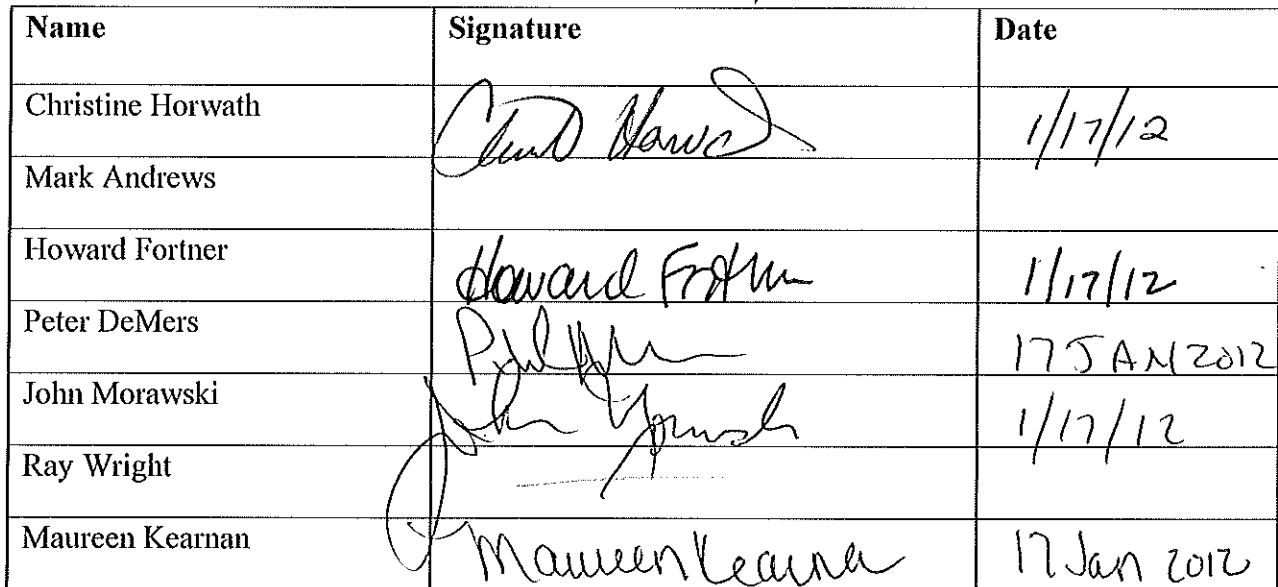 Name Signature Date
Christine Horwath 1/17/12
Mark Andrews
Howard Fortner Howard Fortner 1/17/12
Peter DeMers 17 JAN 2012
John Morawski John Morawski 1/17/12
Ray Wright
Maureen Kearnan Maureen Kearnan 17 Jan 2012